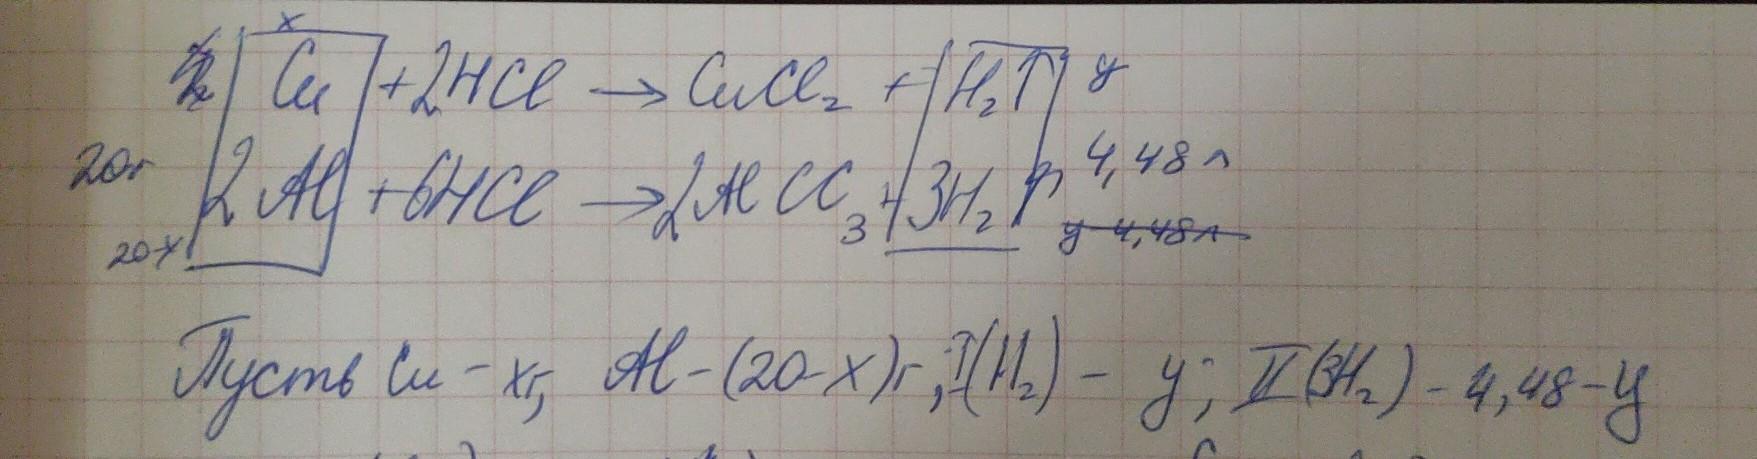 x
Cu + 2HCl → CuCl₂ + H₂↑ y
20г 2Al + 6HCl → 2AlCl₃ + 3H₂↑ 4,48л
20-x y 4,48л
Пусть Cu - xг, Al - (20-x)г, I(H₂) - y; II(3H₂) - 4,48-y